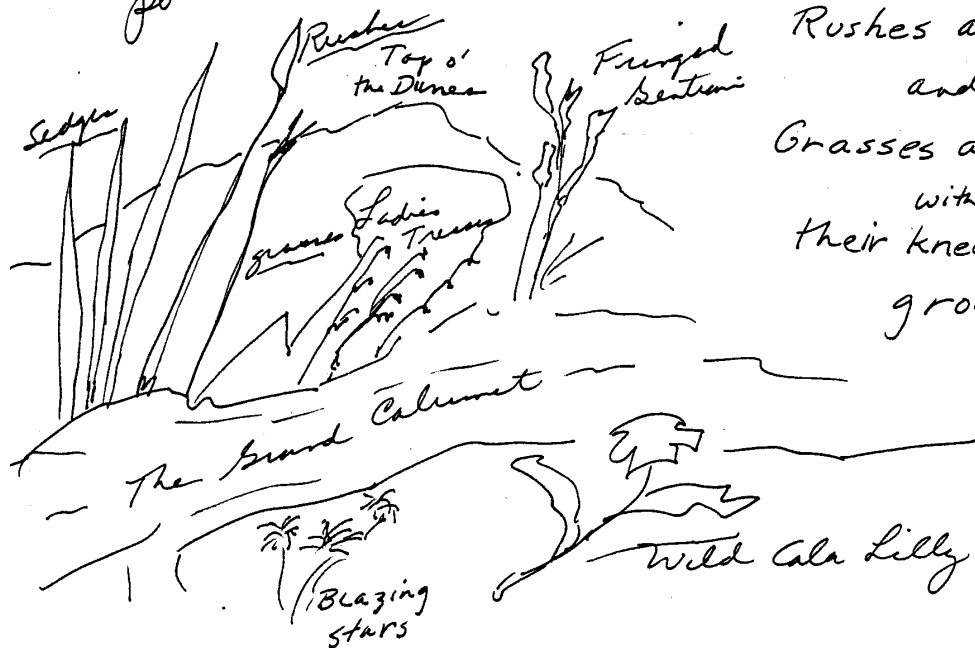 Rushes
Top o'
the Dunes
Sedges
Fringed
Gentian
grasses
Ladies
Tresses
The Grand Calumet
Blazing
stars
Wild Cala Lilly
Rushes a
and
Grasses a
with
their knee
gro